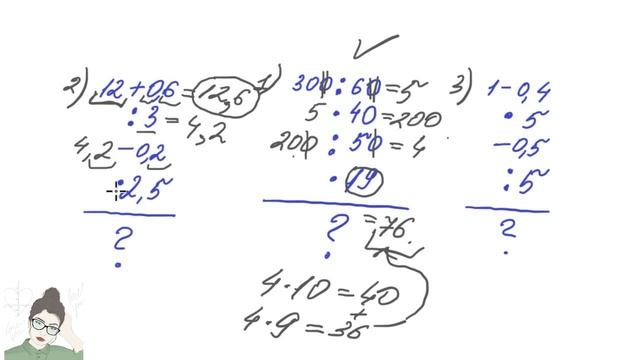 2) 12 + 0,6 = 12,6
: 3 = 4,2
4,2 - 0,2
: 2,5
?
1) 300 : 60 = 5
5 · 40 = 200
200 : 50 = 4
· 19
= 76
?
4 · 10 = 40
+
4 · 9 = 36
3) 1 - 0,4
· 5
- 0,5
: 5
?